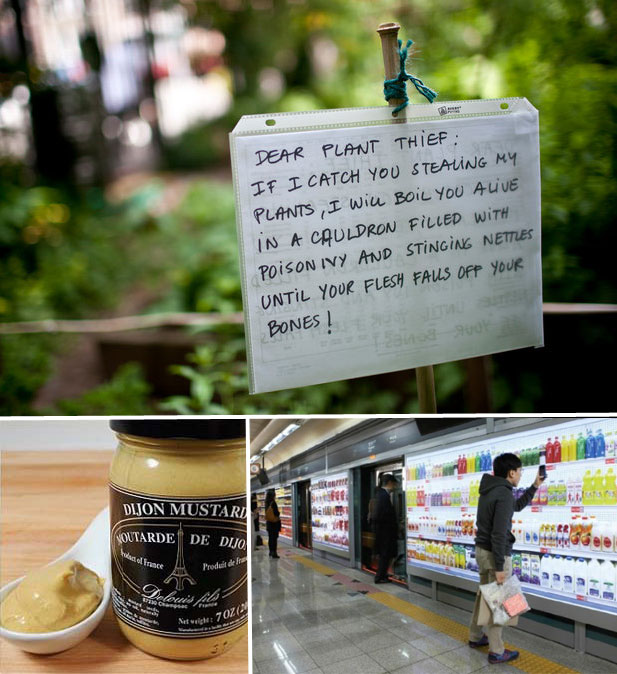 DEAR PLANT THIEF:
IF I CATCH YOU STEALING MY
PLANTS, I WILL BOIL YOU ALIVE
IN A CAULDRON FILLED WITH
POISON IVY AND STINGING NETTLES
UNTIL YOUR FLESH FALLS OFF YOUR
BONES!
DIJON MUSTARD
MOUTARDE DE DIJON
Product of France
Produit de France
Delouis fils
87230 Champsac France
Net weight: 7 OZ